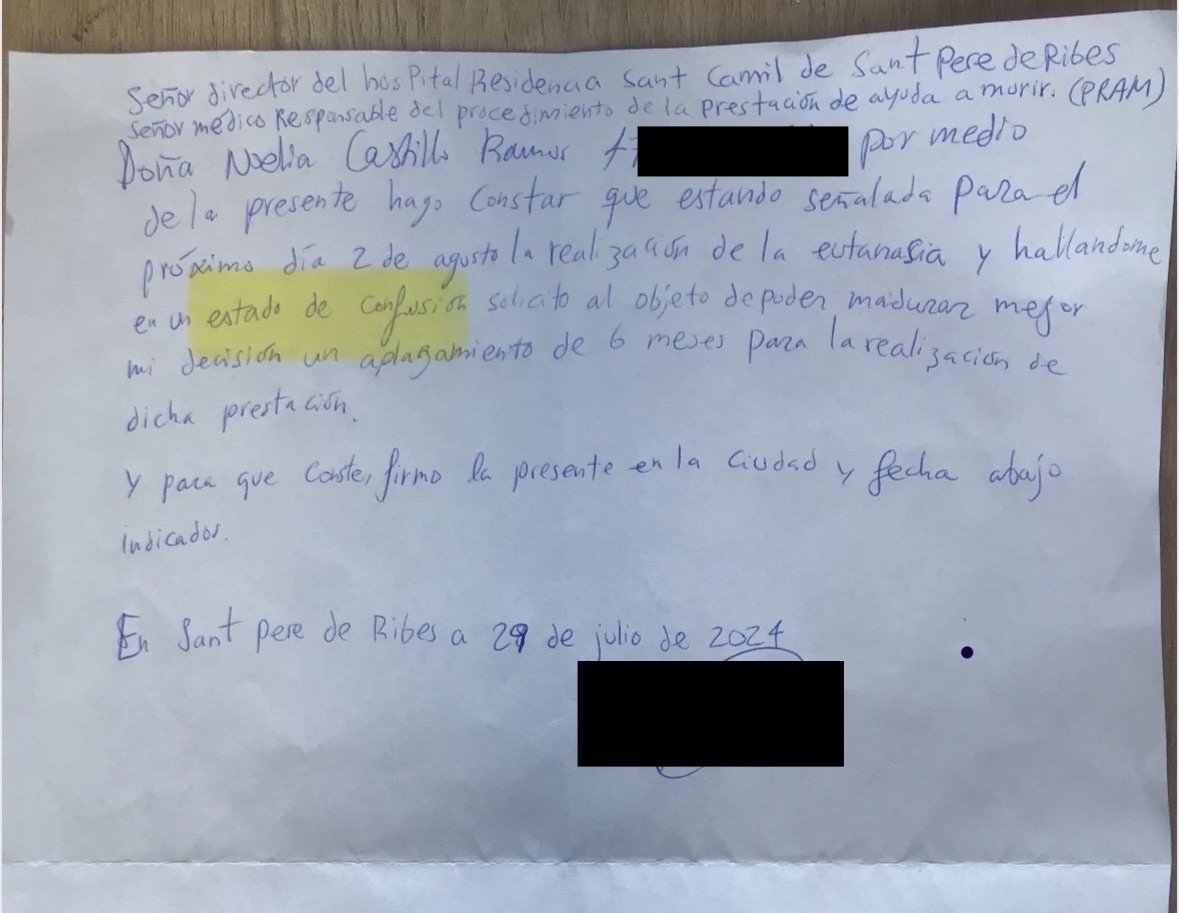 Señor director del hosPital Residencia Sant Camil de Sant Pere de Ribes
Señor médico Responsable del procedimiento de la prestación de ayuda a morir. (PRAM)
Doña Noelia Castillo Ramos por medio
de la presente hago Constar que estando señalada para el
próximo día 2 de agosto la realización de la eutanasia y hallandome
en un estado de Confusión solicito al objeto de poder madurar mejor
mi decisión un aplazamiento de 6 meses para la realización de
dicha prestación.
Y para que Conste, firmo la presente en la Ciudad y fecha abajo
indicados.
En Sant pere de Ribes a 29 de julio de 2024